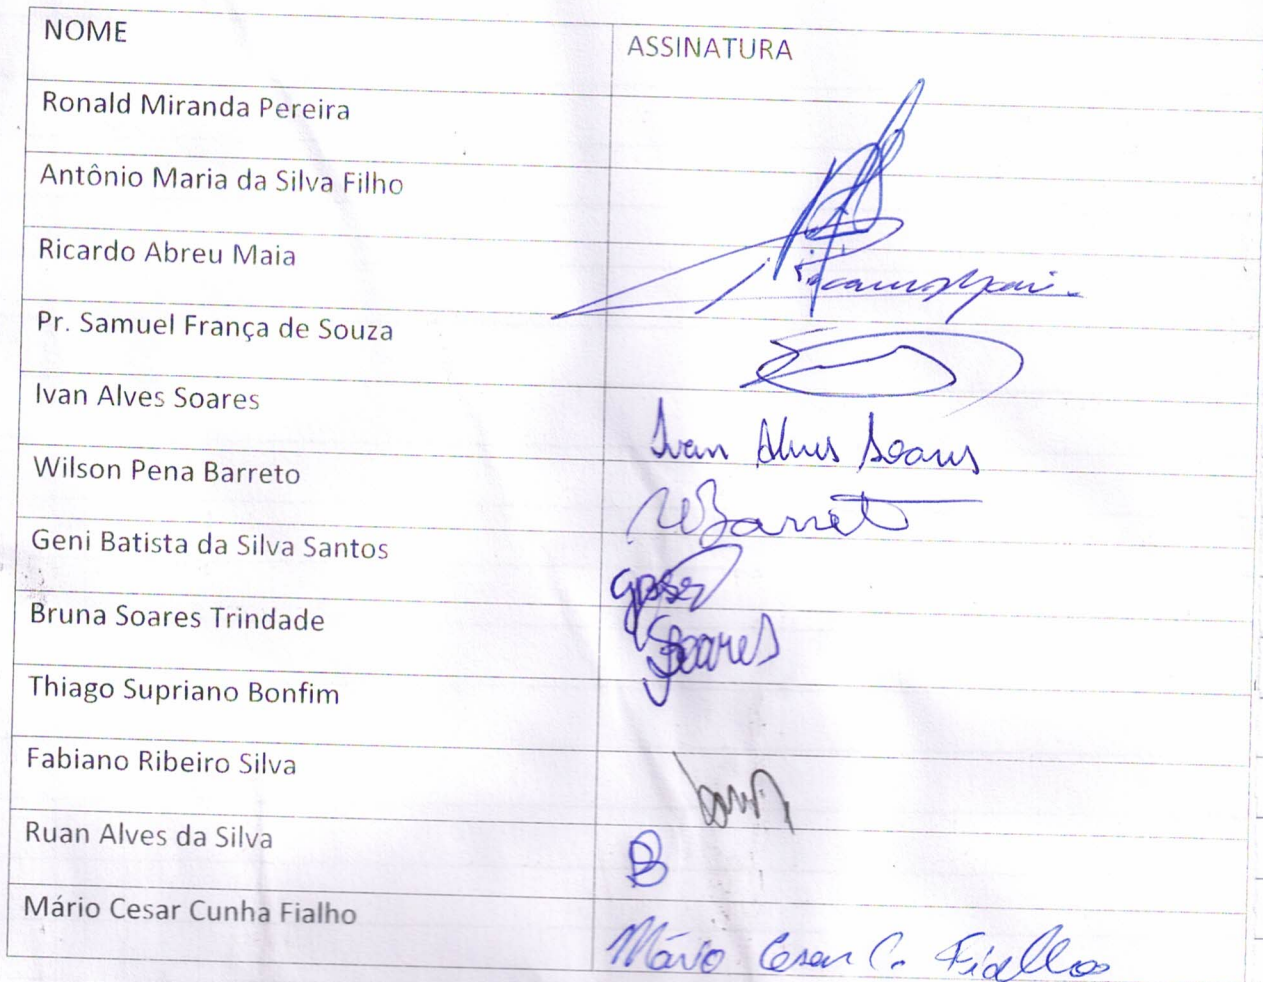 NOME ASSINATURA
Ronald Miranda Pereira
Antônio Maria da Silva Filho
Ricardo Abreu Maia
Pr. Samuel França de Souza
Ivan Alves Soares Ivan Alves Soares
Wilson Pena Barreto WBarreto
Geni Batista da Silva Santos
Bruna Soares Trindade Soares
Thiago Supriano Bonfim
Fabiano Ribeiro Silva
Ruan Alves da Silva
Mário Cesar Cunha Fialho Mário Cesar C. Fialho